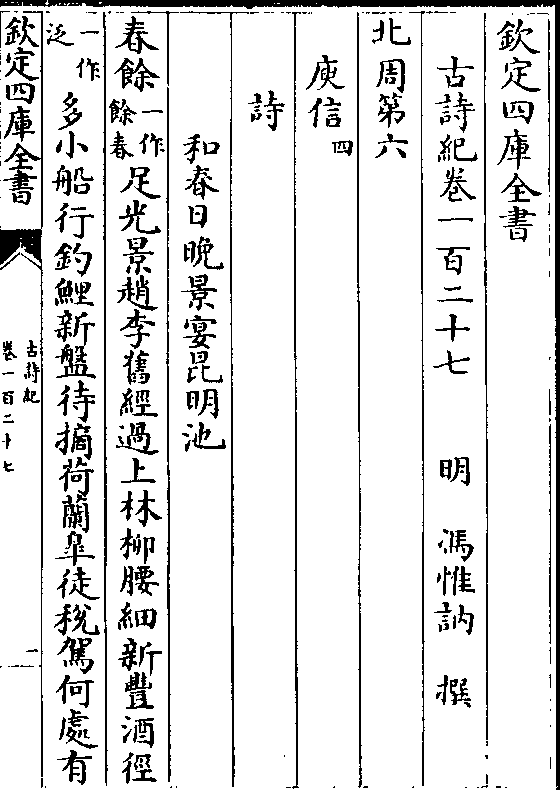 欽定四庫全書
古詩紀卷一百二十七　明　馮惟訥　撰
北周第六
庾信四
詩
和春日晚景宴昆明池
春餘一作餘春足光景趙李舊經過上林柳腰細新豐酒徑
一作泛多小船行釣鯉新盤待摘荷蘭臯徒稅駕何處有
欽定四庫全書
古詩紀
卷一百二十七
一